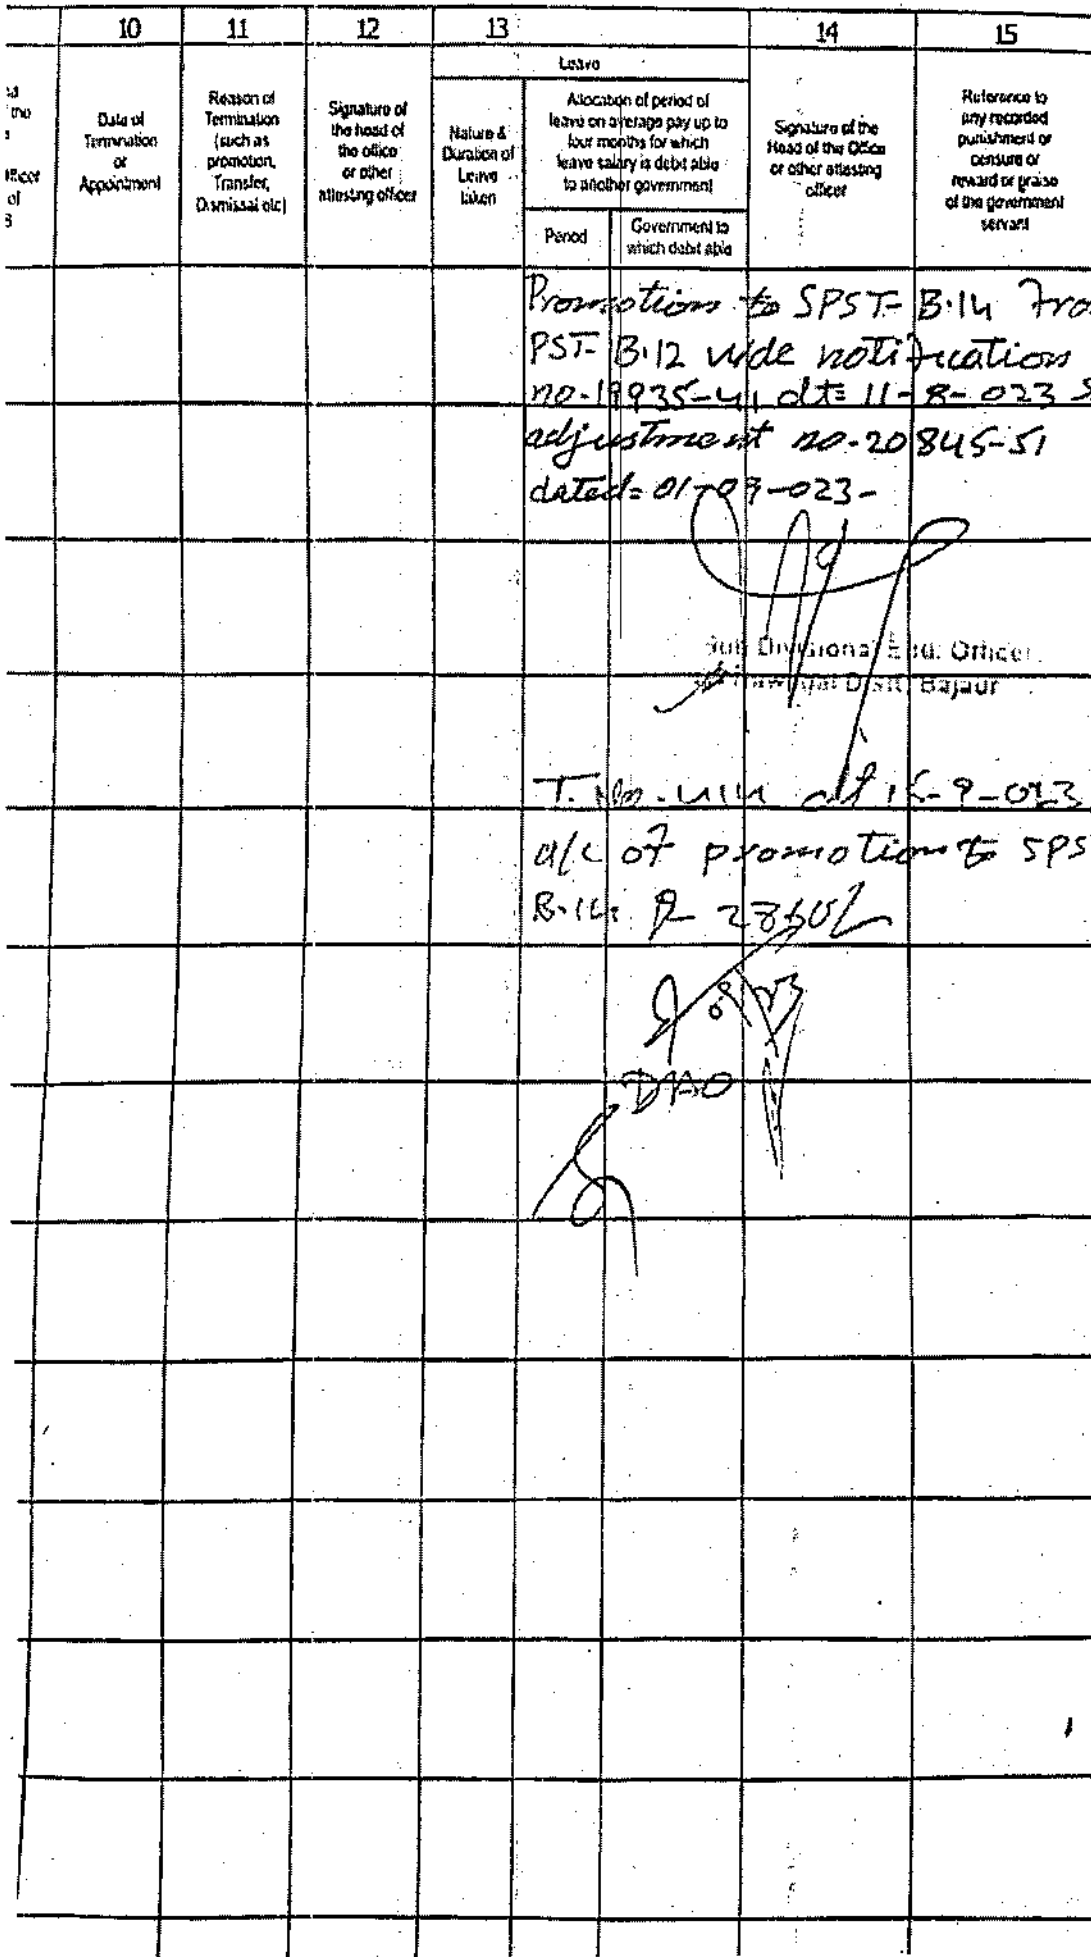 10 11 12 13 14 15
Leave
the
officer
of
Date of
Termination
or
Appointment
Reason of
Termination
(such as
promotion,
Transfer,
Dismissal etc)
Signature of
the head of
the office
or other
attesting officer
Nature &
Duration of
Leave
taken
Allocation of period of
leave on average pay up to
four months for which
leave salary is debit able
to another government
Period
Government to
which debit able
Signature of the
Head of the Office
or other attesting
officer
Reference to
any recorded
punishment or
censure or
reward or praise
of the government
servant
Promotion to SPST- B.14 From
PST- B.12 vide notification
no-19935-41 dt= 11-8-023 &
adjustment no-20845-51
dated= 01-09-023-
Sub Divisional Edu: Officer
Distt: Bajaur
T. No. dt 15-9-023
a/c of promotion to SPS
B.14
DAO